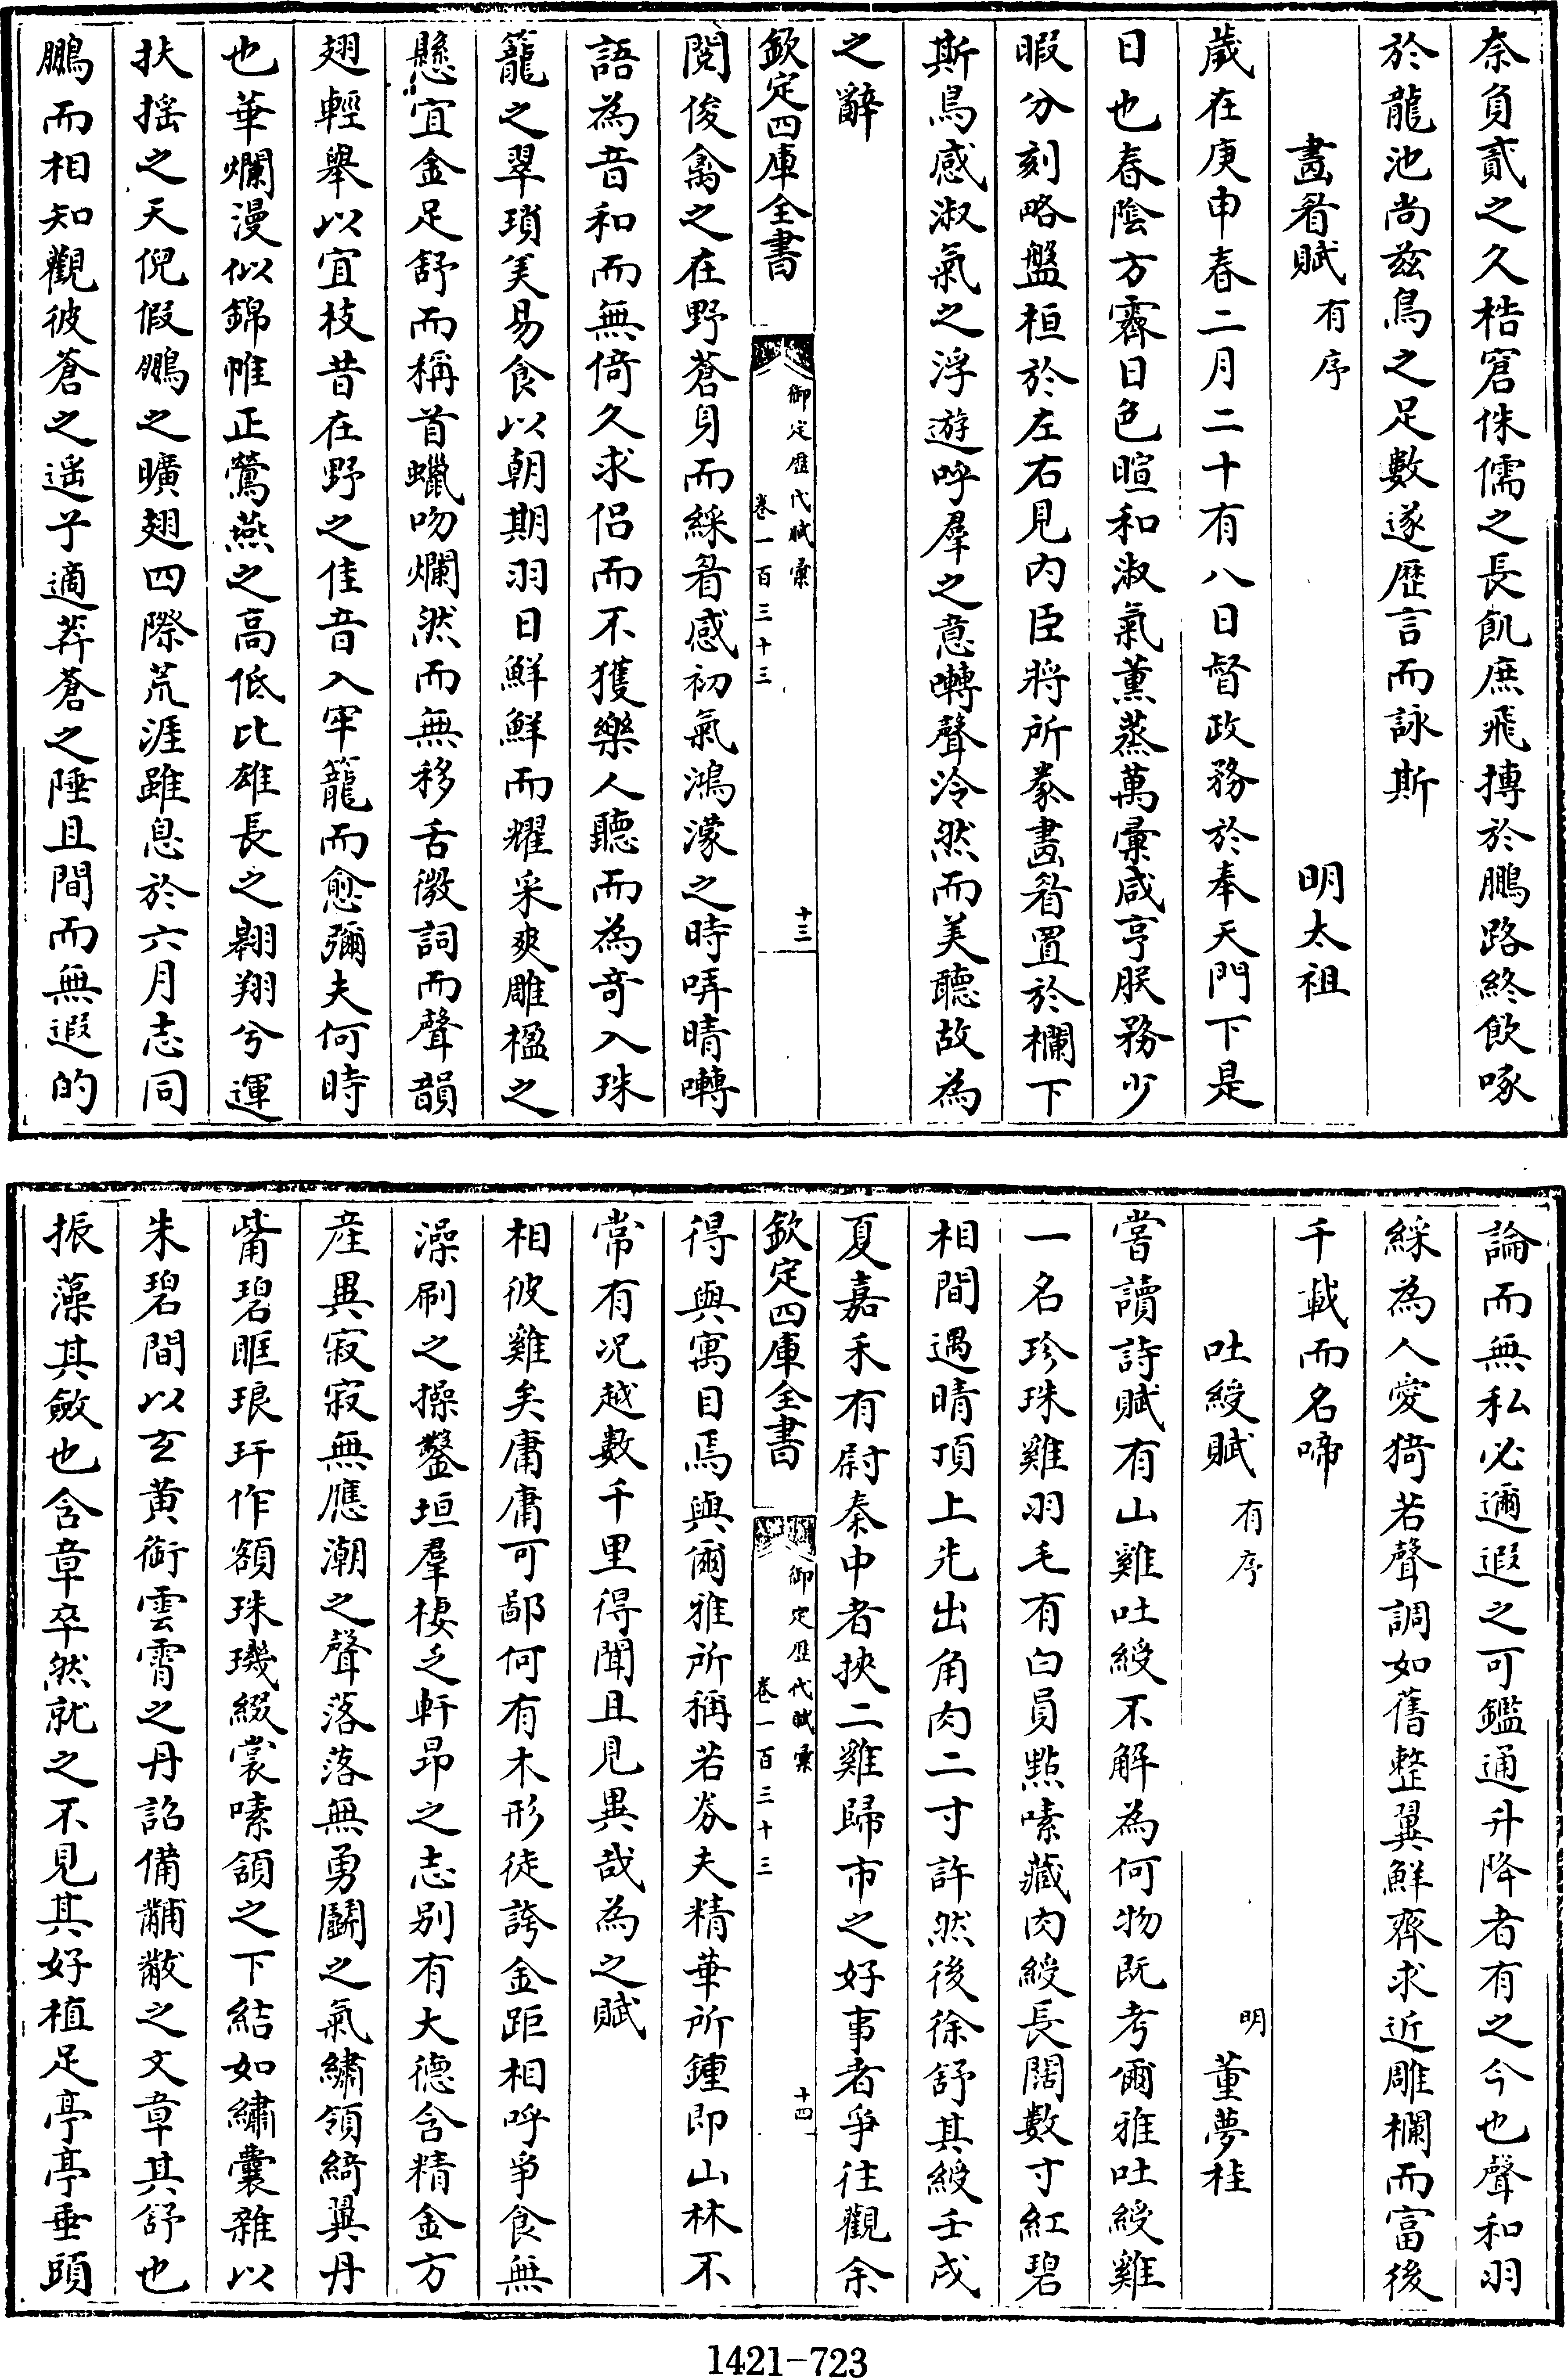 奈負貳之久梏窘侏儒之長飢庶飛摶於鵬路終飲啄
於龍池尚兹鳥之足數遂歴言而詠斯
畫眉賦有序 明太祖
歲在庚申春二月二十有八日督政務於奉天門下是
日也春陰方霽日色暄和淑氣薰蒸萬彙咸亨朕務少
暇分刻略盤桓於左右見内臣將所豢畫眉置於欄下
斯鳥感淑氣之浮遊呼羣之意囀聲泠然而美聽故為
之辭
欽定四庫全書 御定歴代賦彙 卷一百三十三 十三
閲俊禽之在野蒼身而綵眉感初氣鴻濛之時哢晴囀
語為音和而無倚久求侣而不獲樂人聽而為竒入珠
籠之翠瑣羙易食以朝期羽日鮮鮮而耀采爽雕楹之
懸宜金足舒而稱首蠟吻爛然而無移舌微詞而聲韻
翅輕舉以宜枝昔在野之佳音入牢籠而愈彌夫何時
也華爛漫似錦帷正鶯燕之高低比雄長之翱翔兮運
扶揺之天倪假鵬之曠翅四際荒涯雖息於六月志同
鵬而相知觀彼蒼之遥乎適莽蒼之陲且間而無遐的
論而無私必邇遐之可鑑通升降者有之今也聲和羽
綵為人愛猗若聲調如舊整翼鮮齊求近雕欄而富後
千載而名啼
吐綬賦有序 明董夢桂
嘗讀詩賦有山雞吐綬不解為何物既考爾雅吐綬雞
一名珍珠雞羽毛有白員㸃嗉藏肉綬長闊數寸紅碧
相間遇晴頂上先出角肉二寸許然後徐舒其綬壬戌
夏嘉禾有尉秦中者挾二雞歸市之好事者爭往觀余
欽定四庫全書 御定歴代賦彙 卷一百三十三 十四
得與寓目焉與爾雅所稱若券夫精華所鍾即山林不
常有况越數千里得聞且見異哉為之賦
相彼雞矣庸庸可鄙何有木形徒誇金距相呼爭食無
澡刷之操鑿垣羣棲乏軒昂之志别有大德含精金方
産異寂寂無應潮之聲落落無勇鬬之氣繡領綺翼丹
觜碧眶琅玕作額珠璣綴裳嗉頷之下結如繡囊雜以
朱碧間以玄黄銜雲霄之丹詔備黼黻之文章其舒也
振藻其斂也含章卒然就之不見其好植足亭亭垂頭
1421-723